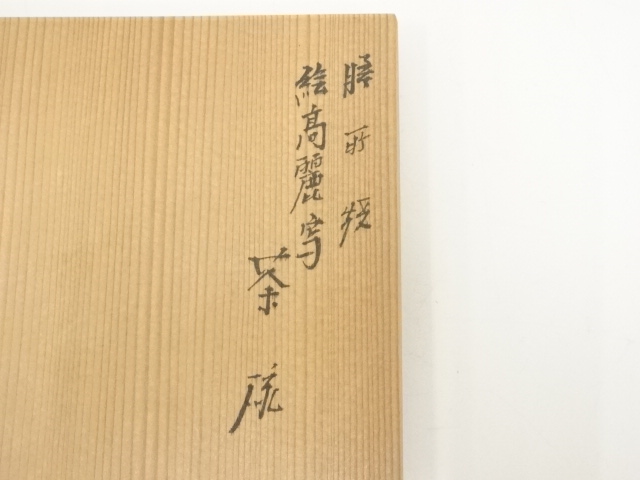 膳所焼
絵高麗写
茶碗